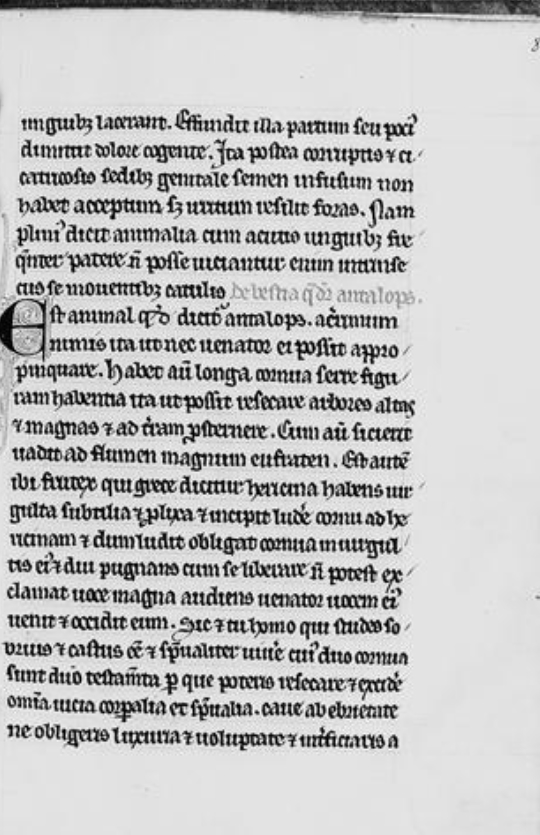 8
unguibꝫ lacerant. Effundit illa partum seu pocꝰ
dimittit dolore cogente. Ita postea corruptis ⁊ ci
catricosis sedibꝫ genitale semen infusum non
habet acceptum sꝫ irritum resilit foras. Nam
pliniꝰ dicit animalia cum acutis unguibꝫ fre
q̄nter patere n̄ posse uiciantur enim intrinse
cus se mouentibꝫ catulis De bestia q̄ dr̄ antalops.
Est animal qd̄ dicit᷑ antalops. acrimum
nimis ita ut nec uenator ei possit appro
pinquare. Habet aū longa cornua serre figu
ram habentia ita ut possit resecare arbores altas
⁊ magnas ⁊ ad t̄ram ꝓsternere. Cum aū sicierit
uadit ad flumen magnum eufraten. Est autē
ibi frutex qui grece dicitur hericina habens uir
gulta subtilia ⁊ ꝓlixa ⁊ incipit ludē cornu ad he
ricinam ⁊ dum ludit obligat cornua in uirgul
tis eiꝰ ⁊ diu pugnans cum se liberare n̄ potest ex
clamat uoce magna audiens uenator uocem eiꝰ
uenit ⁊ occidit eum. Sic ⁊ tu homo qui studes so
brius ⁊ castus eē ⁊ sp̄ualiter uiuē cuiꝰ duo cornua
sunt duo testam̄ta ꝑ que poteris resecare ⁊ excidē
om̄ia uicia corꝑalia et sp̄ualia. caue ab ebrietate
ne obligeris luxuria ⁊ uoluptate ⁊ int̄ficiaris a